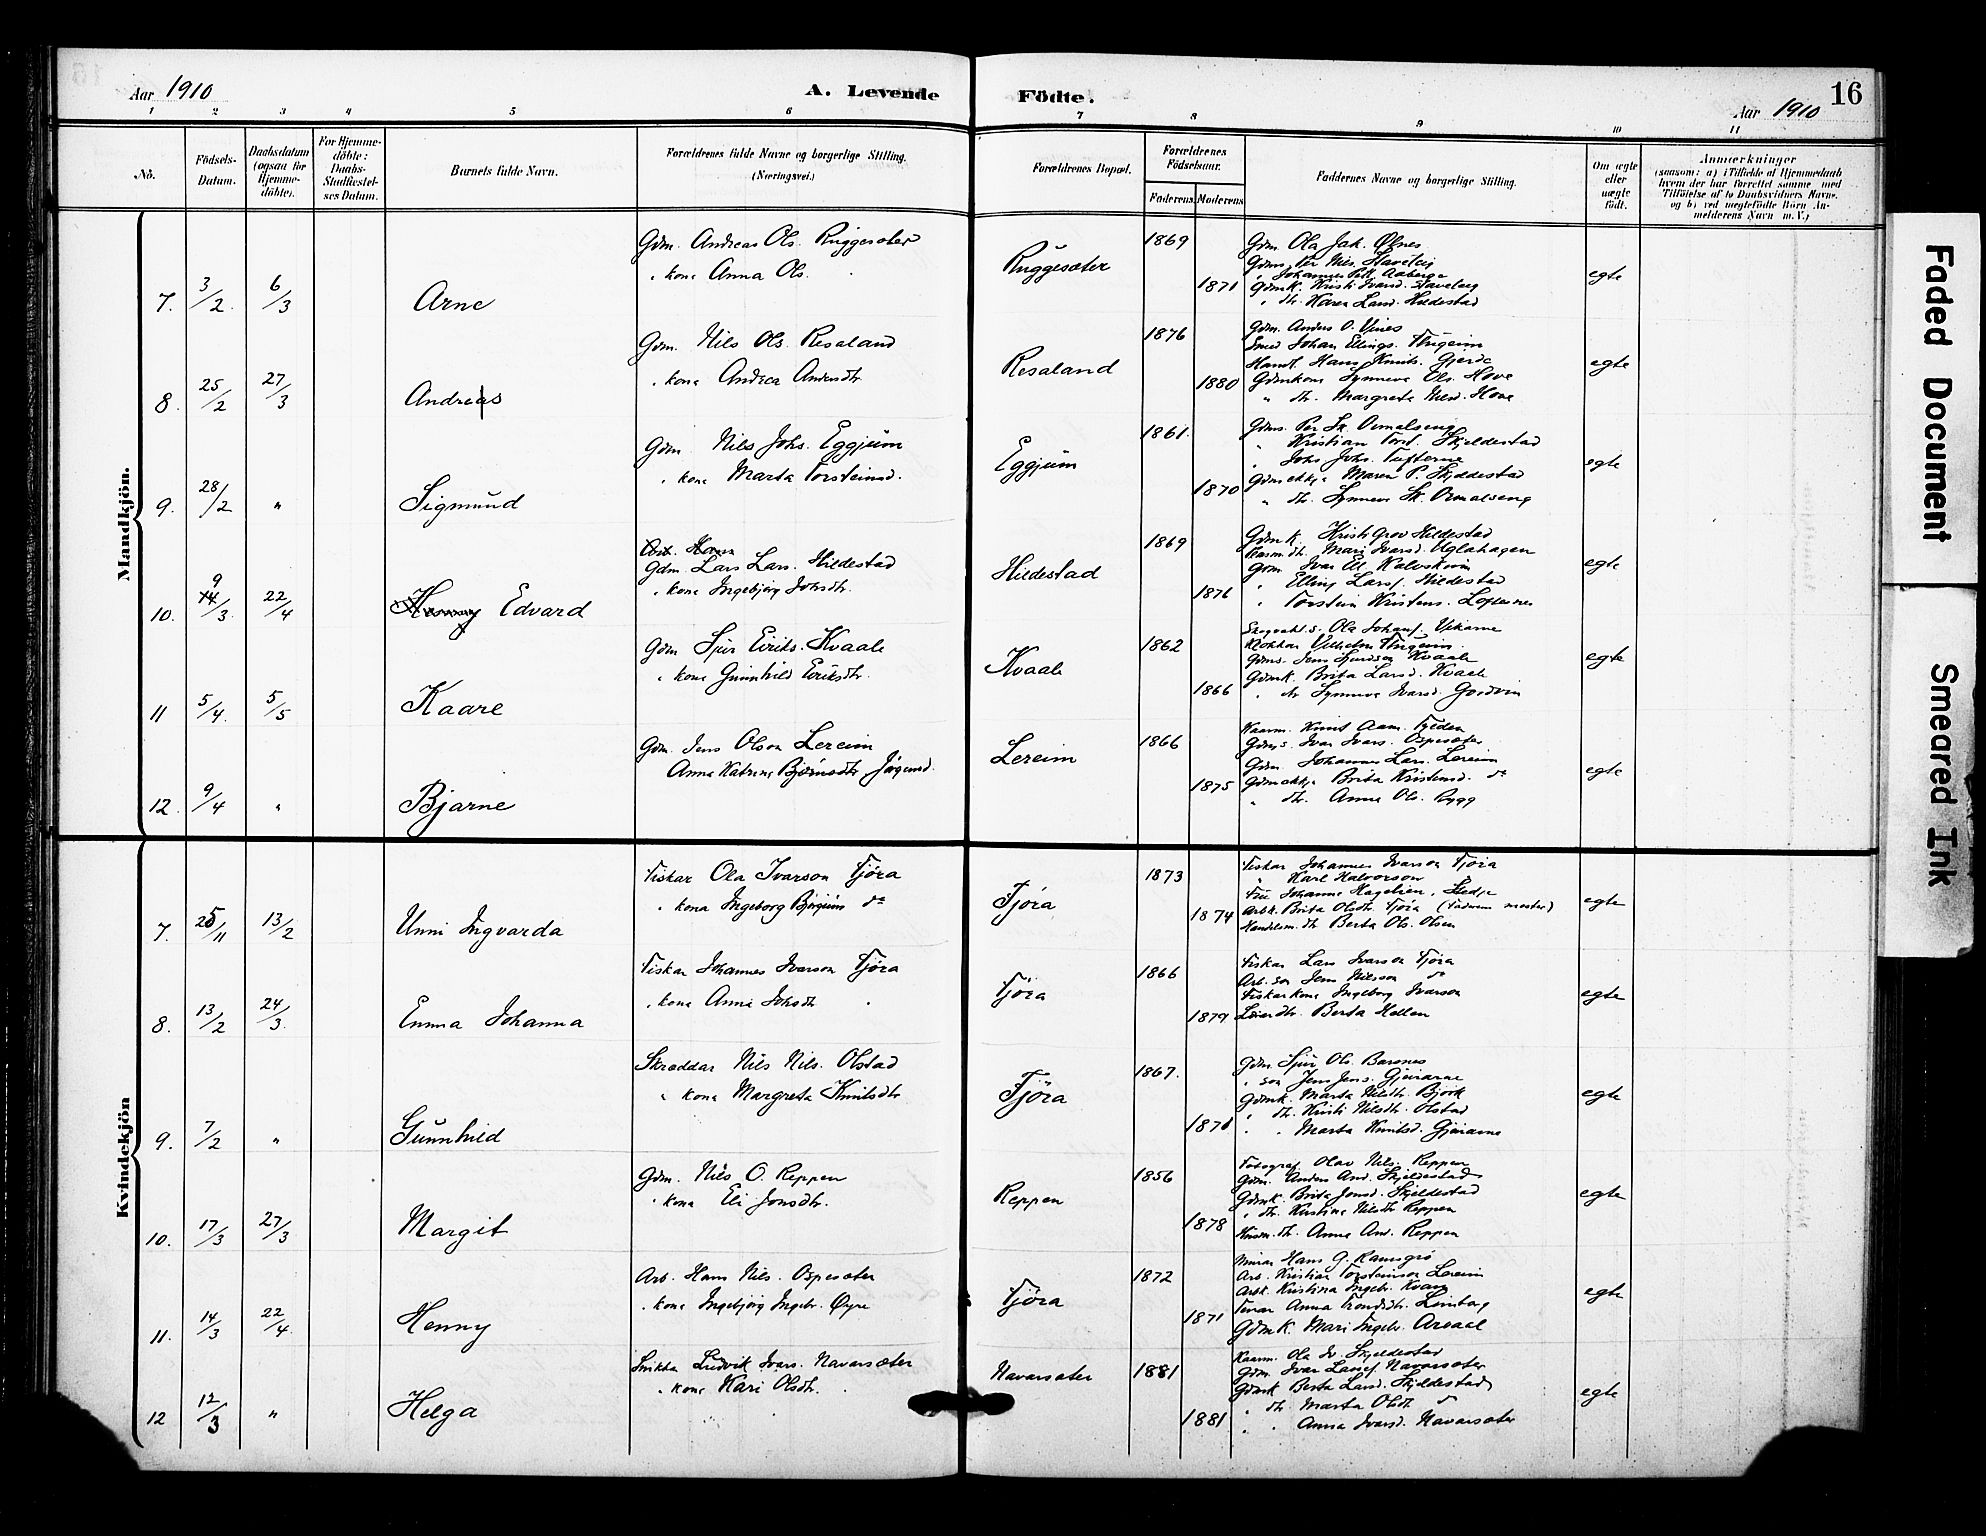 Aar 1910
A. Levende
Födte.
Aar 1910
16
1 2 3 4 5 6 7 8 9 10 11
No.
Födsels-Datum.
Daabsdatum (ogsaa for Hjemme-döbte).
For Hjemme-döbte: Daabs-Stadfæstelses Datum.
Barnets fulde Navn.
Forældrenes fulde Navne og borgerlige Stilling. (Næringsvei.)
Forældrenes Bopæl.
Forældrenes Födselsaar.
Faderens. Moderens
Faddernes Navne og borgerlige Stilling.
Om ægte eller uægte födt.
Anmærkninger
(saasom: a) i Tilfælde af Hjemmedaab
hvem der har forrettet samme med
Tilföielse af to Daabsvidners Navne.
og b) ved uægtefödte Börn An-
melderens Navn m. V.)
Mandkjön.
7. 3/2. 6/3 Arne
Gdm. Andreas Ols. Ruggesæter
" kona Anna Ols.
Ruggesæter 1869 1871
Gdm. Ola Jak.
Gdms. Per Nils.
" Johannes Aaberge
Gdmk. Kristi Ivarsd.
" dtr. Karen Larsd. Hildestad
egte
8. 25/2 27/3 Andreas
Gdm. Nils Ols. Resaland
" kona Andrea Andersdtr
Resaland 1876 1880
Gdm. Anders O. Vines
Smed Johan Ellings. Thugeim
Handl. Hans Knuts. Gjerde
Gdmkona Synneva Ols. Hove
" dtr. Margreta Hove
egte
9. 28/2 " Sigmund
Gdm. Nils Johs. Eggjum
" kona Marta Torsteinsd.
Eggjum 1861. 1870
Gdms. Per Sk. Ormalseng
" Kristian Torst. Skjeldestad
" Johs Johs. Tufterne
Maren P. Skjeldestad
" dtr. Synneva Sk. Ormalseng
egte
10. 9/3 22/4 Henny Edvard
Gdm. Lars Lars. Hildestad
" kona Ingebjørg Jonsdtr.
Hildestad 1869 1876
Gdmk. Kristi Grov Hildestad
dtr. Mari Ivarsd. Uglahagen
Gdm. Ivar
" Elling Larss. Hildestad
" Torstein Kristens. Loftesnes
egte
11 5/4. 5/5 Kaare
Gdm Sjur Eiriks. Kvaale
" kona Gunnhild Eiriksdtr.
Kvaale 1862 1866
Ola Johans.
Klokkar Vilhelm Thugeim.
Gdms. Jens Sjurdson Kvaale
Gdmk. Brita Larsd. Kvaale
" dtr Synneva Ivarsd.
egte
12. 9/4 " Bjarne
Gdm. Jens Olson Lereim
Anna Katrina Bjørnsdtr Jørgensd.
Lereim 1866 1875
Kaarm. Knut Aam. Tylden
Gdms. Ivar Ivars. Ospesæter
Gdm. Johannes Lars. Lereim
Brita Kristensd. do
" dtr. Anna Ols. Rygg
egte
Kvindekjön
7. 25/11 13/2 Unni Ingvarda
Fiskar Ola Ivarson Fjøra
" kona Ingeborg Bjørgum do
Fjøra 1873 1874
Fiskar Johannes Ivarson Fjøra
" Karl Halvorson
Fru Johanne Hagelien,
Arbk. Brita Olsdtr. Fjøra (Faderens moster)
Handelsm. dtr Berta Ols. Olsen
egte
8. 13/2 24/3. Emma Johanna
Fiskar Johannes Ivarson Fjøra
" kona Anna Johsdtr
Fjøra 1866 1879
Fiskar Lars Ivarson Fjøra
Arb. son Jens Nilsson do
Fiskarkona Ingeborg Ivarson
dtr. Berta Hellen
egte
9. 7/2 " Gunnhild
Skræddar Nils Nils. Olstad
" kona Margreta Knutsdtr
Fjöra 1867. 1870
Gdm Sjur Ols. Barsnes
" son Jens Jens. Gjeirarne
Gdmk. Marta Nilsdtr. Bjork
" dtr. Kristi Nilsdtr. Olstad
" " Marta Knutsd. Gjeirarne
egte
10. 17/3 27/3 Margit
Gdm. Nils O. Reppen
" kona Eli Jonsdtr.
Reppen 1856 1878
Fotograf Olav Nils. Reppen
Gdm. Anders And. Skjeldestad
Gdmk. Brita Jonsd. Skjeldestad
" dtr. Kristina Nilsdtr Reppen
dtr. Anna And. Reppen
egte
11. 14/3 22/4. Henny
Arb. Hans Nils. Ospesæter
" kona Ingebjørg Ingebr. Øyre
Fjöra 1872 1871
Murar Hans G. Ramsgrø
Arb. Kristian Torsteinson Lereim
Arbk. Kristina Ingebr. Kvam
Anna Trondsdtr.
Gdmk. Mari Ingebr.
egte
12 12/3 " Helga
Snikkar Ludvik Ivars. Navarsæter
" kona Kari Olsdtr.
Navarsæter 1881 1881
Kaarm. Ola Iv. Skjeldestad
Gdm. Ivar Larss. Navarsæter
Gdmk Berta Larsd. Skjeldestad
" dtr. Marta Olsdtr do
" " Anna Ivarsd. Navarsæter
egte
Faded Document
Smeared Ink